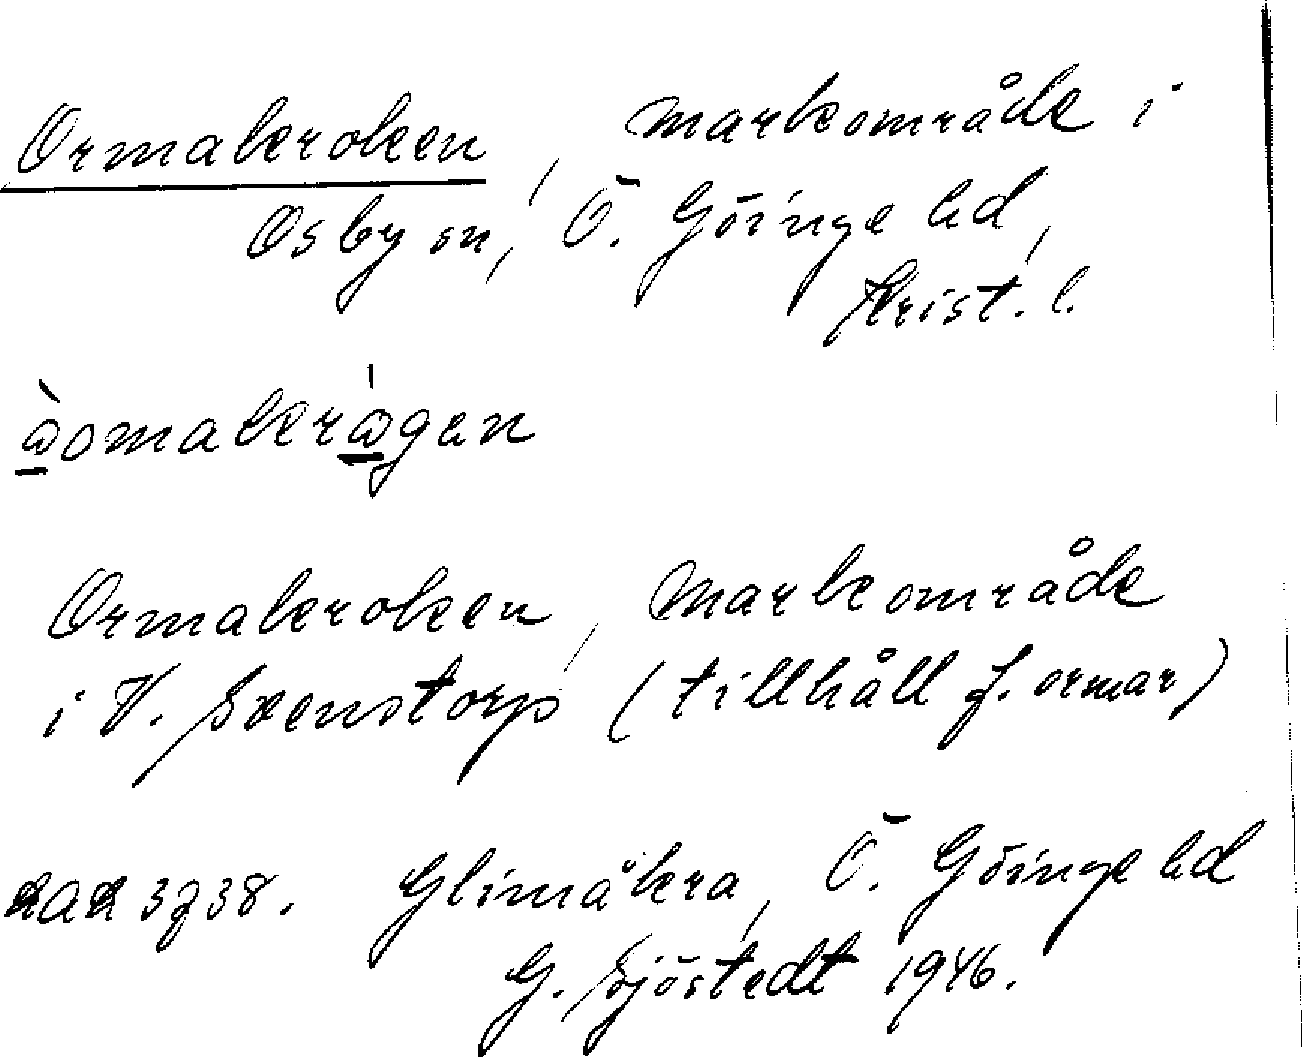 Ormakroken, markområde i
Osby sn, Ö. Göinge hd,
Krist. l.
Ormakroken, markområde
i V. Svenstorp (tillhåll f. ormar)
Glimåkra, Ö. Göinge hd
G. Sjöstedt 1946.